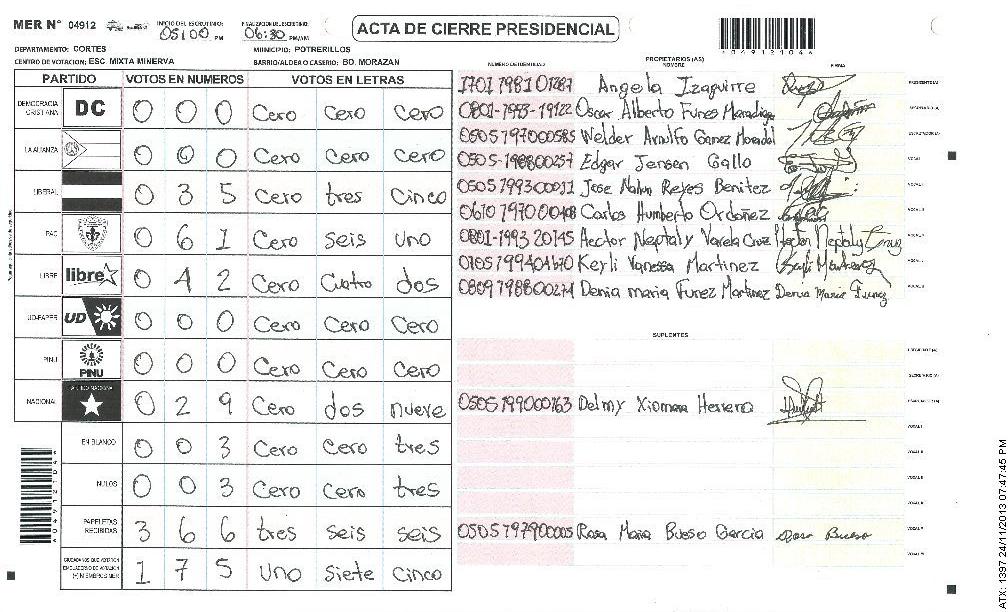 MER N° 04912 INICIO DEL ESCRUTINIO: 05:00 PM FINALIZACION DEL ESCRUTINIO: 06:30 PM/AM ACTA DE CIERRE PRESIDENCIAL
DEPARTAMENTO: CORTES MUNICIPIO: POTRERILLOS
CENTRO DE VOTACION: ESC. MIXTA MINERVA BARRIO/ALDEA O CASERIO: BO. MORAZAN
PARTIDO VOTOS EN NUMEROS VOTOS EN LETRAS
DEMOCRACIA CRISTIANA DC 0 0 0 Cero Cero Cero
LA ALIANZA 0 0 0 Cero Cero Cero
LIBERAL 0 3 5 Cero tres Cinco
PAC 0 6 1 Cero seis uno
LIBRE libre 0 4 2 Cero Cuatro dos
UD-FAPER UD 0 0 0 Cero Cero Cero
PINU PINU 0 0 0 Cero Cero Cero
NACIONAL 0 2 9 Cero dos nueve
EN BLANCO 0 0 3 Cero Cero tres
NULOS 0 0 3 Cero Cero tres
PAPELETAS RECIBIDAS 3 6 6 tres seis seis
1 7 5 Uno Siete Cinco
PROPIETARIOS (AS)
NOMBRE FIRMA
Angela Izaguirre
Oscar Alberto Funes
Welder Arnulfo Gomez
Edgar Jensen Gallo
Jose Nahun Reyes Benitez
Carlos Humberto Ordoñez
Hector Neptaly Varela Cruz Hector Neptaly Cruz
Keyli Vanessa Martinez Keyli Martinez
Denia maria Funez Martinez Denia Maria Funez
SUPLENTES
0505199000163 Delmy Xiomara Herrera
0505197900005 Rosa Maria Bueso Garcia Rosa Bueso
ATX: 1397 24/11/2013 07:47:45 PM